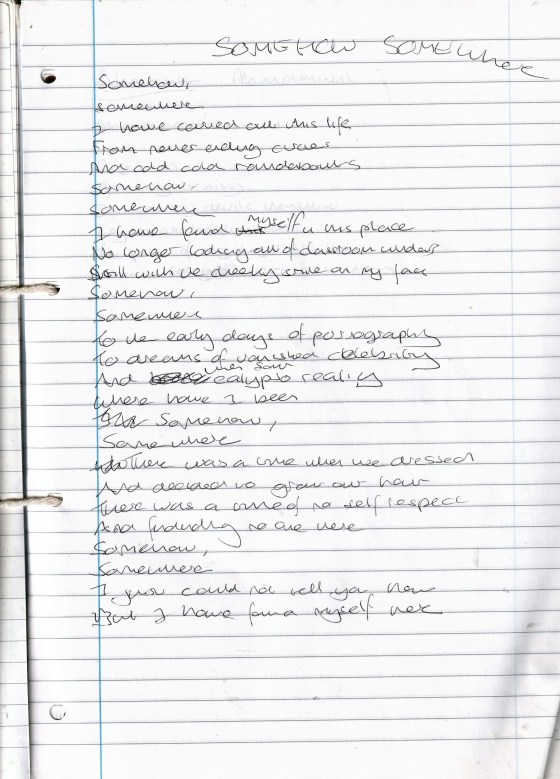 SOMEHOW SOMEWHERE
Somehow,
somewhere
I have carved out this life
From never ending curves
And odd cold roundabouts
Somehow
Somewhere
I have found myself in this place
No longer looking out of classroom windows
Still with the cheeky smile on my face
Somehow,
Somewhere
To the early days of pornography
To dreams of vanished celebrity
And reality
Where have I been
Somehow,
Somewhere
There was a time when we dressed
And decided to grow our hair
There was a time of no self respect
And finding no one here
Somehow,
Somewhere
I just could not tell you how
But I have found myself here